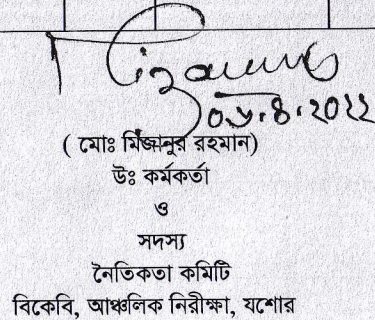 ০৬.৪.২০২২
( মোঃ মিজানুর রহমান)
উঃ কর্মকর্তা
ও
সদস্য
নৈতিকতা কমিটি
বিকেবি, আঞ্চলিক নিরীক্ষা, যশোর